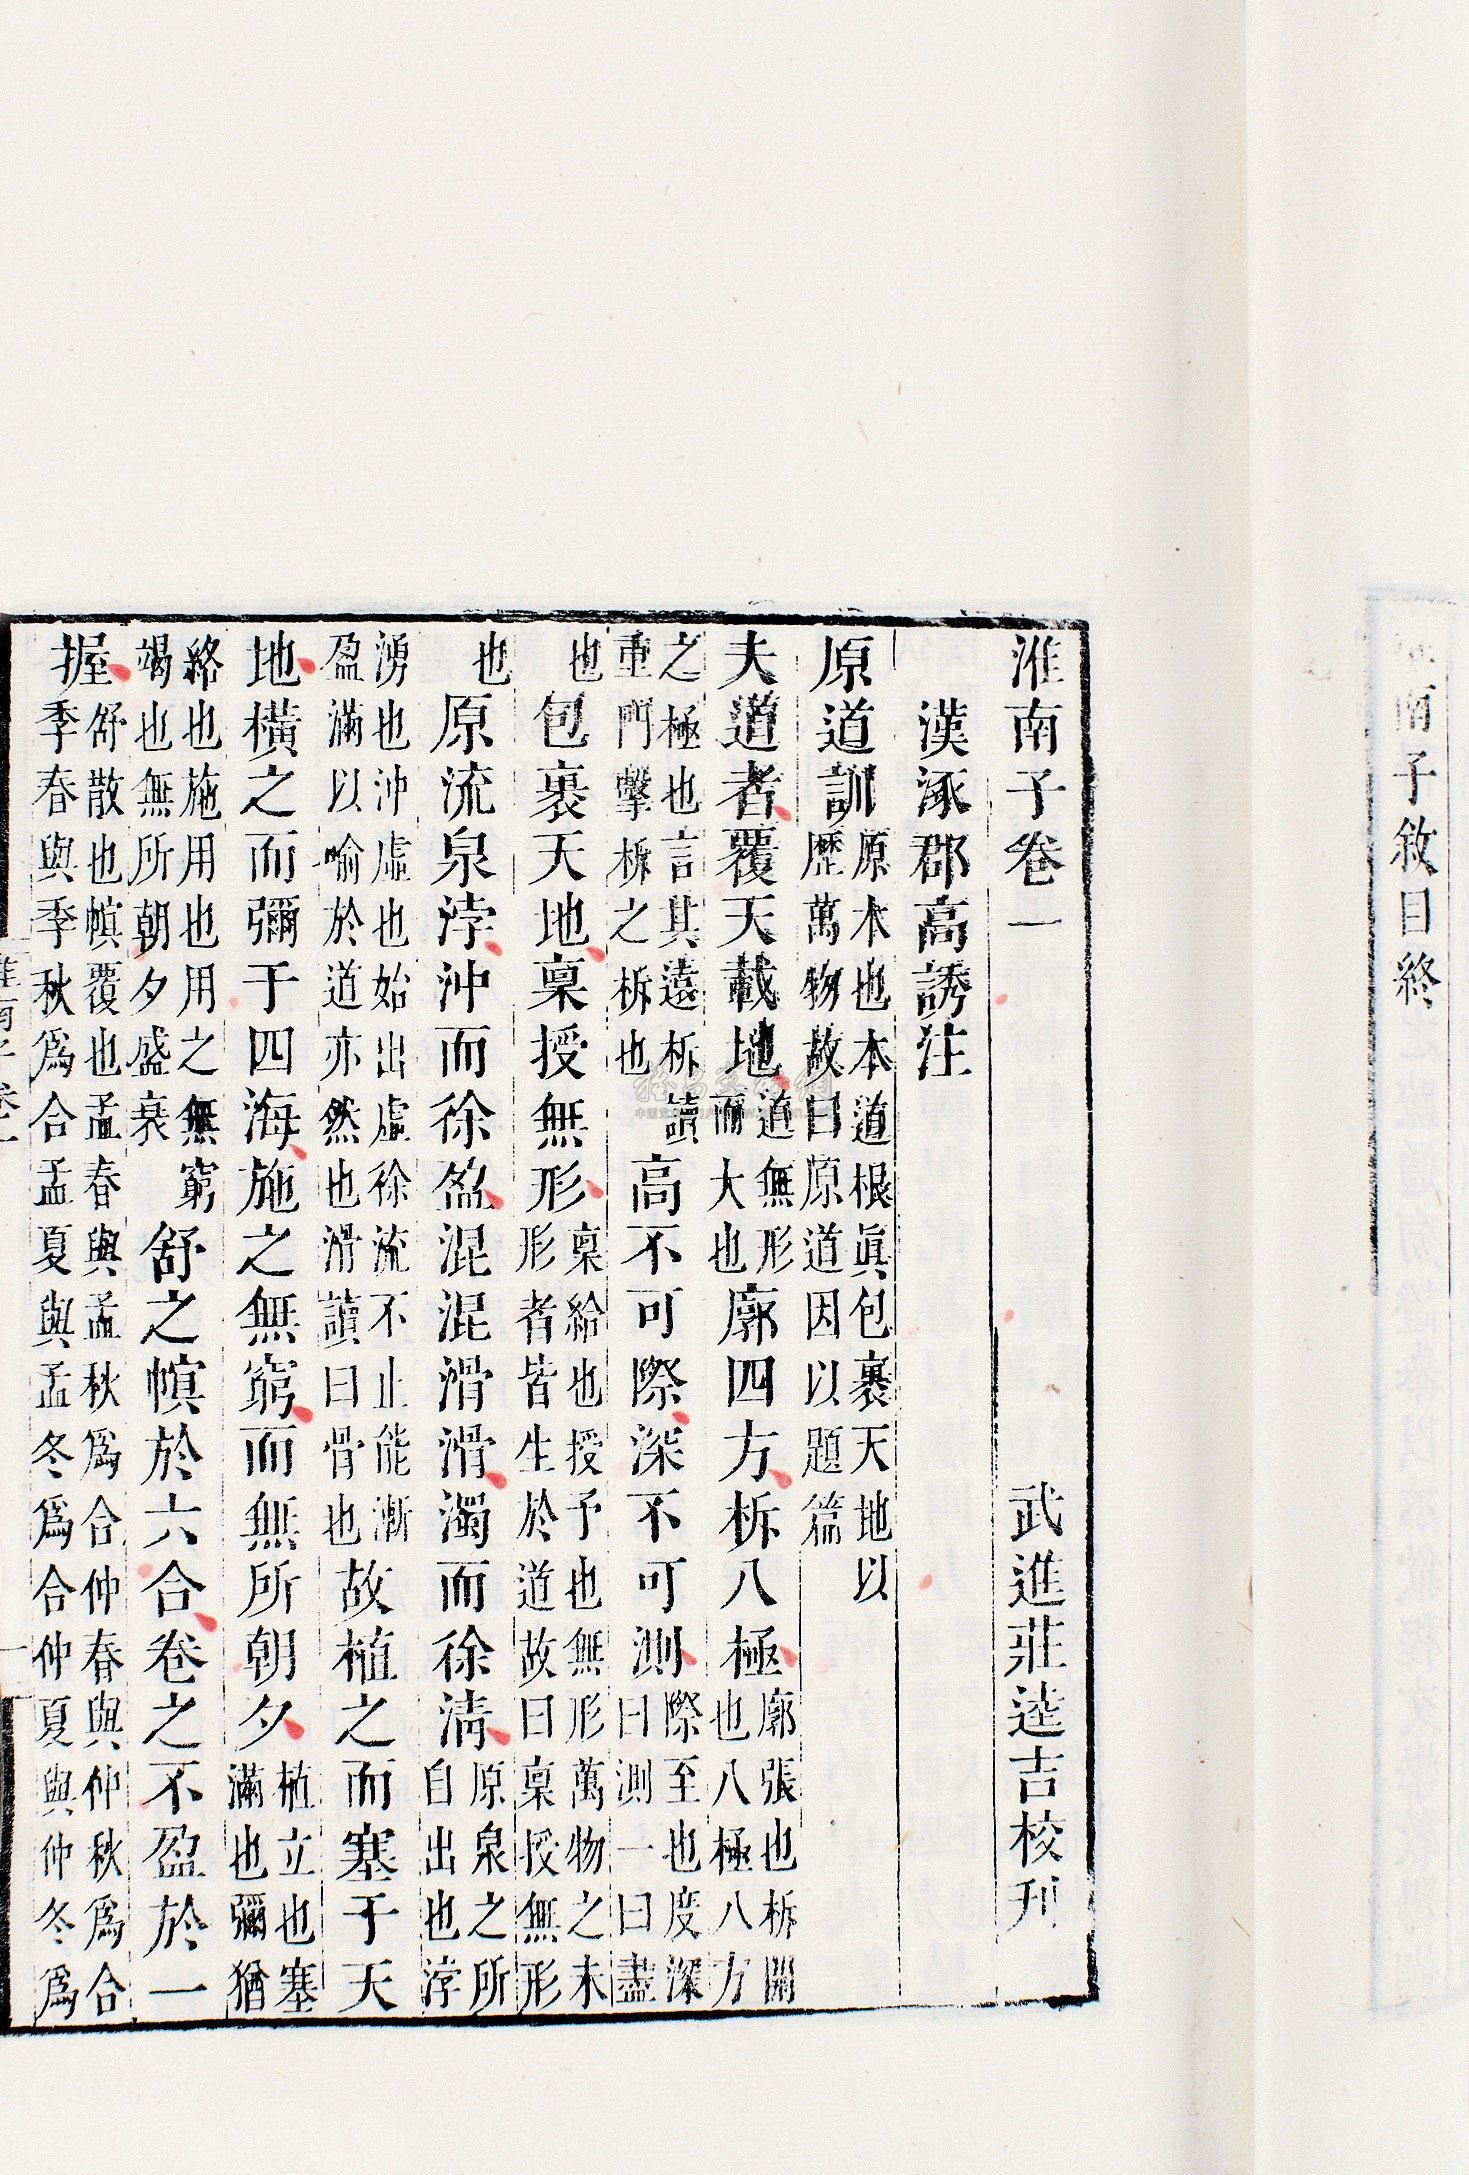 淮南子敘目終
淮南子卷一　武進莊逵吉校刊
漢涿郡高誘注
原道訓原本也本道根眞包裹天地以歷萬物故曰原道因以題篇
夫道者覆天載地道無形而大也廓四方柝八極廓張也柝開也八極八方
之極也言其遠柝讀重門擊柝之柝也高不可際深不可測際至也度深曰測一曰盡
也包裹天地稟授無形稟給也授予也無形萬物之未形者皆生於道故曰稟授無形
也原流泉浡沖而徐盈混混滑滑濁而徐清原泉之所自出也浡
湧也沖虛也始出虛徐流不止能漸盈滿以喻於道亦然也滑讀曰骨也故植之而塞于天
地橫之而彌于四海施之無窮而無所朝夕植立也塞滿也彌猶
絡也施用也用之無窮竭也無所朝夕盛衰舒之幎於六合卷之不盈於一
握舒散也幎覆也孟春與孟秋爲合仲春與仲秋爲合季春與季秋爲合孟夏與孟冬爲合仲夏與仲冬爲
淮南子卷一　一